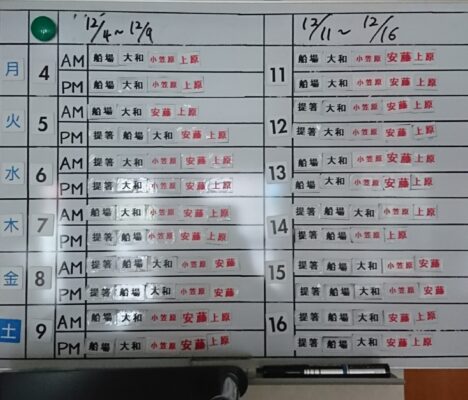 12/4~12/9 12/11~12/16
月 4 AM 船場 大和 小笠原 上原 11 船場 大和 小笠原 安藤 上原
PM 船場 大和 小笠原 上原 船場 大和 小笠原 安藤 上原
火 5 AM 船場 大和 安藤 上原 12 提箸 船場 大和 安藤 上原
PM 提箸 船場 大和 安藤 上原 提箸 船場 大和 安藤 上原
水 6 AM 提箸 大和 小笠原 安藤 上原 13 船場 大和 小笠原 安藤 上原
PM 提箸 大和 小笠原 安藤 上原 船場 大和 小笠原 安藤 上原
木 7 AM 船場 大和 小笠原 安藤 上原 14 提箸 船場 大和 小笠原 上原
PM 提箸 船場 小笠原 安藤 上原 提箸 船場 大和 小笠原 上原
金 8 AM 提箸 船場 大和 小笠原 安藤 15 提箸 船場 大和 小笠原 安藤
PM 提箸 船場 大和 小笠原 安藤 提箸 船場 大和 小笠原 安藤
土 9 AM 船場 大和 小笠原 安藤 上原 16 提箸 船場 大和 安藤 上原
PM 船場 大和 小笠原 安藤 上原 提箸 船場 大和 安藤 上原